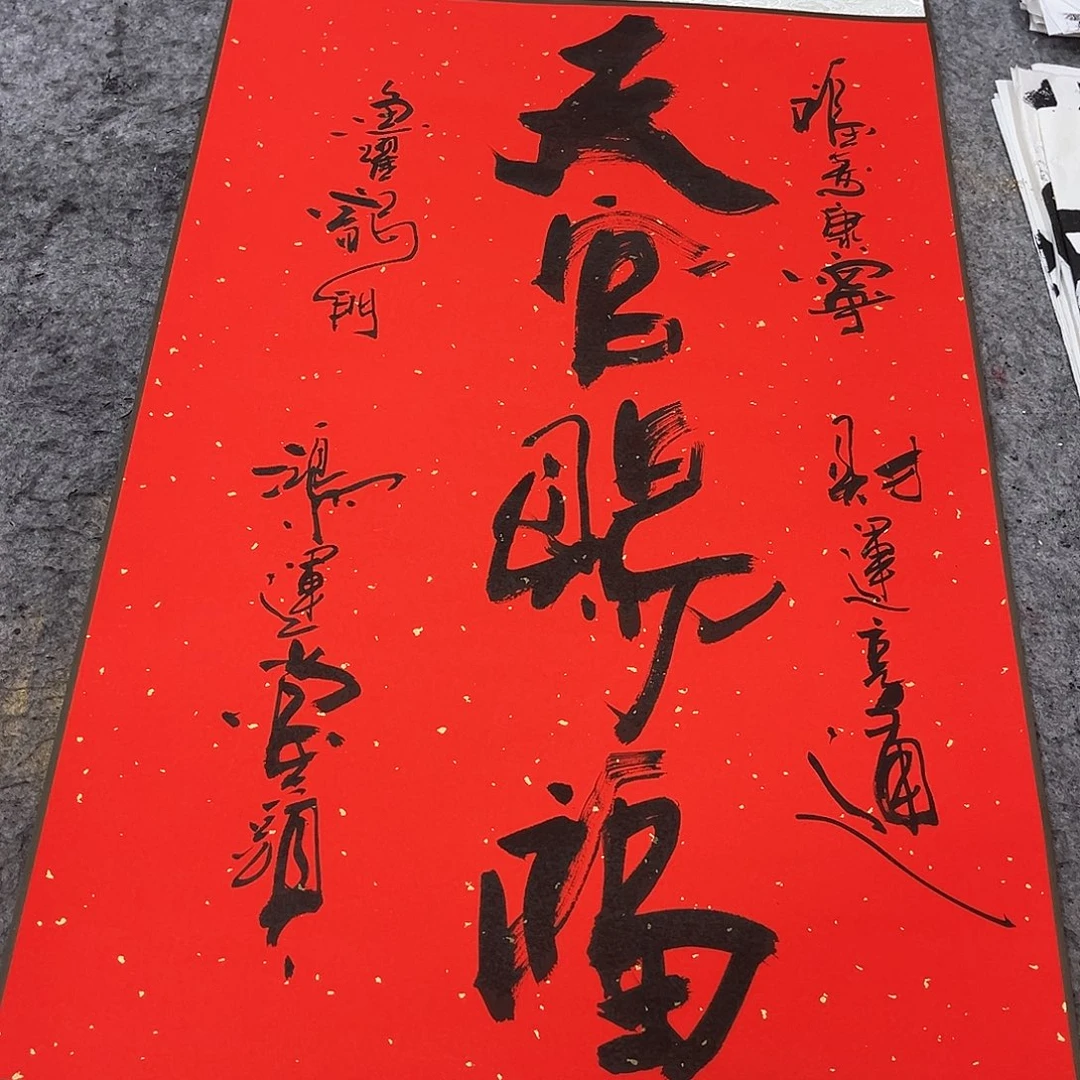 福壽康寧
財運亨通
天官賜福
魚躍龍門
鴻運當頭